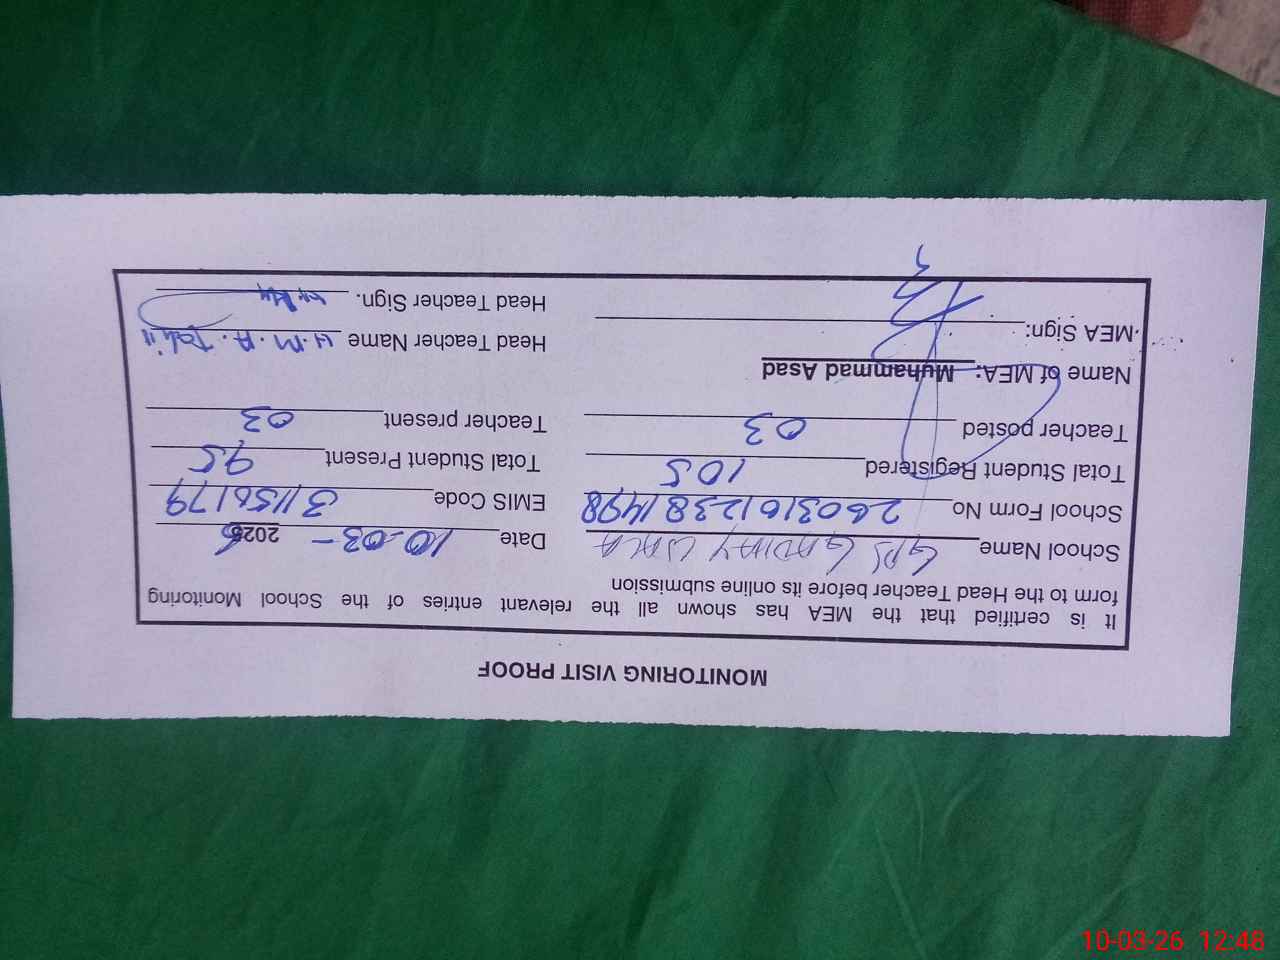 MONITORING VISIT PROOF
It is certified that the MEA has shown all the relevant entries of the School Monitoring
form to the Head Teacher before its online submission
School Name GPS GADHAY WALA Date 10-03-2026
School Form No 26031012381498 EMIS Code 31156179
Total Student Registered 105 Total Student Present 95
Teacher posted 03 Teacher present 03
Name of MEA: Muhammad Asad Head Teacher Name H.M.A.Tahir
MEA Sign: Head Teacher Sign.
10-03-26 12:48